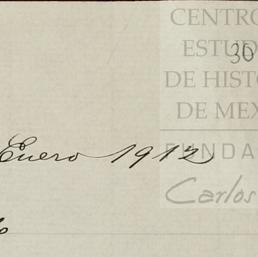 CENTRO
ESTUD
30
DE HISTO
DE MEX
FUNDA
Carlos
Enero 1912